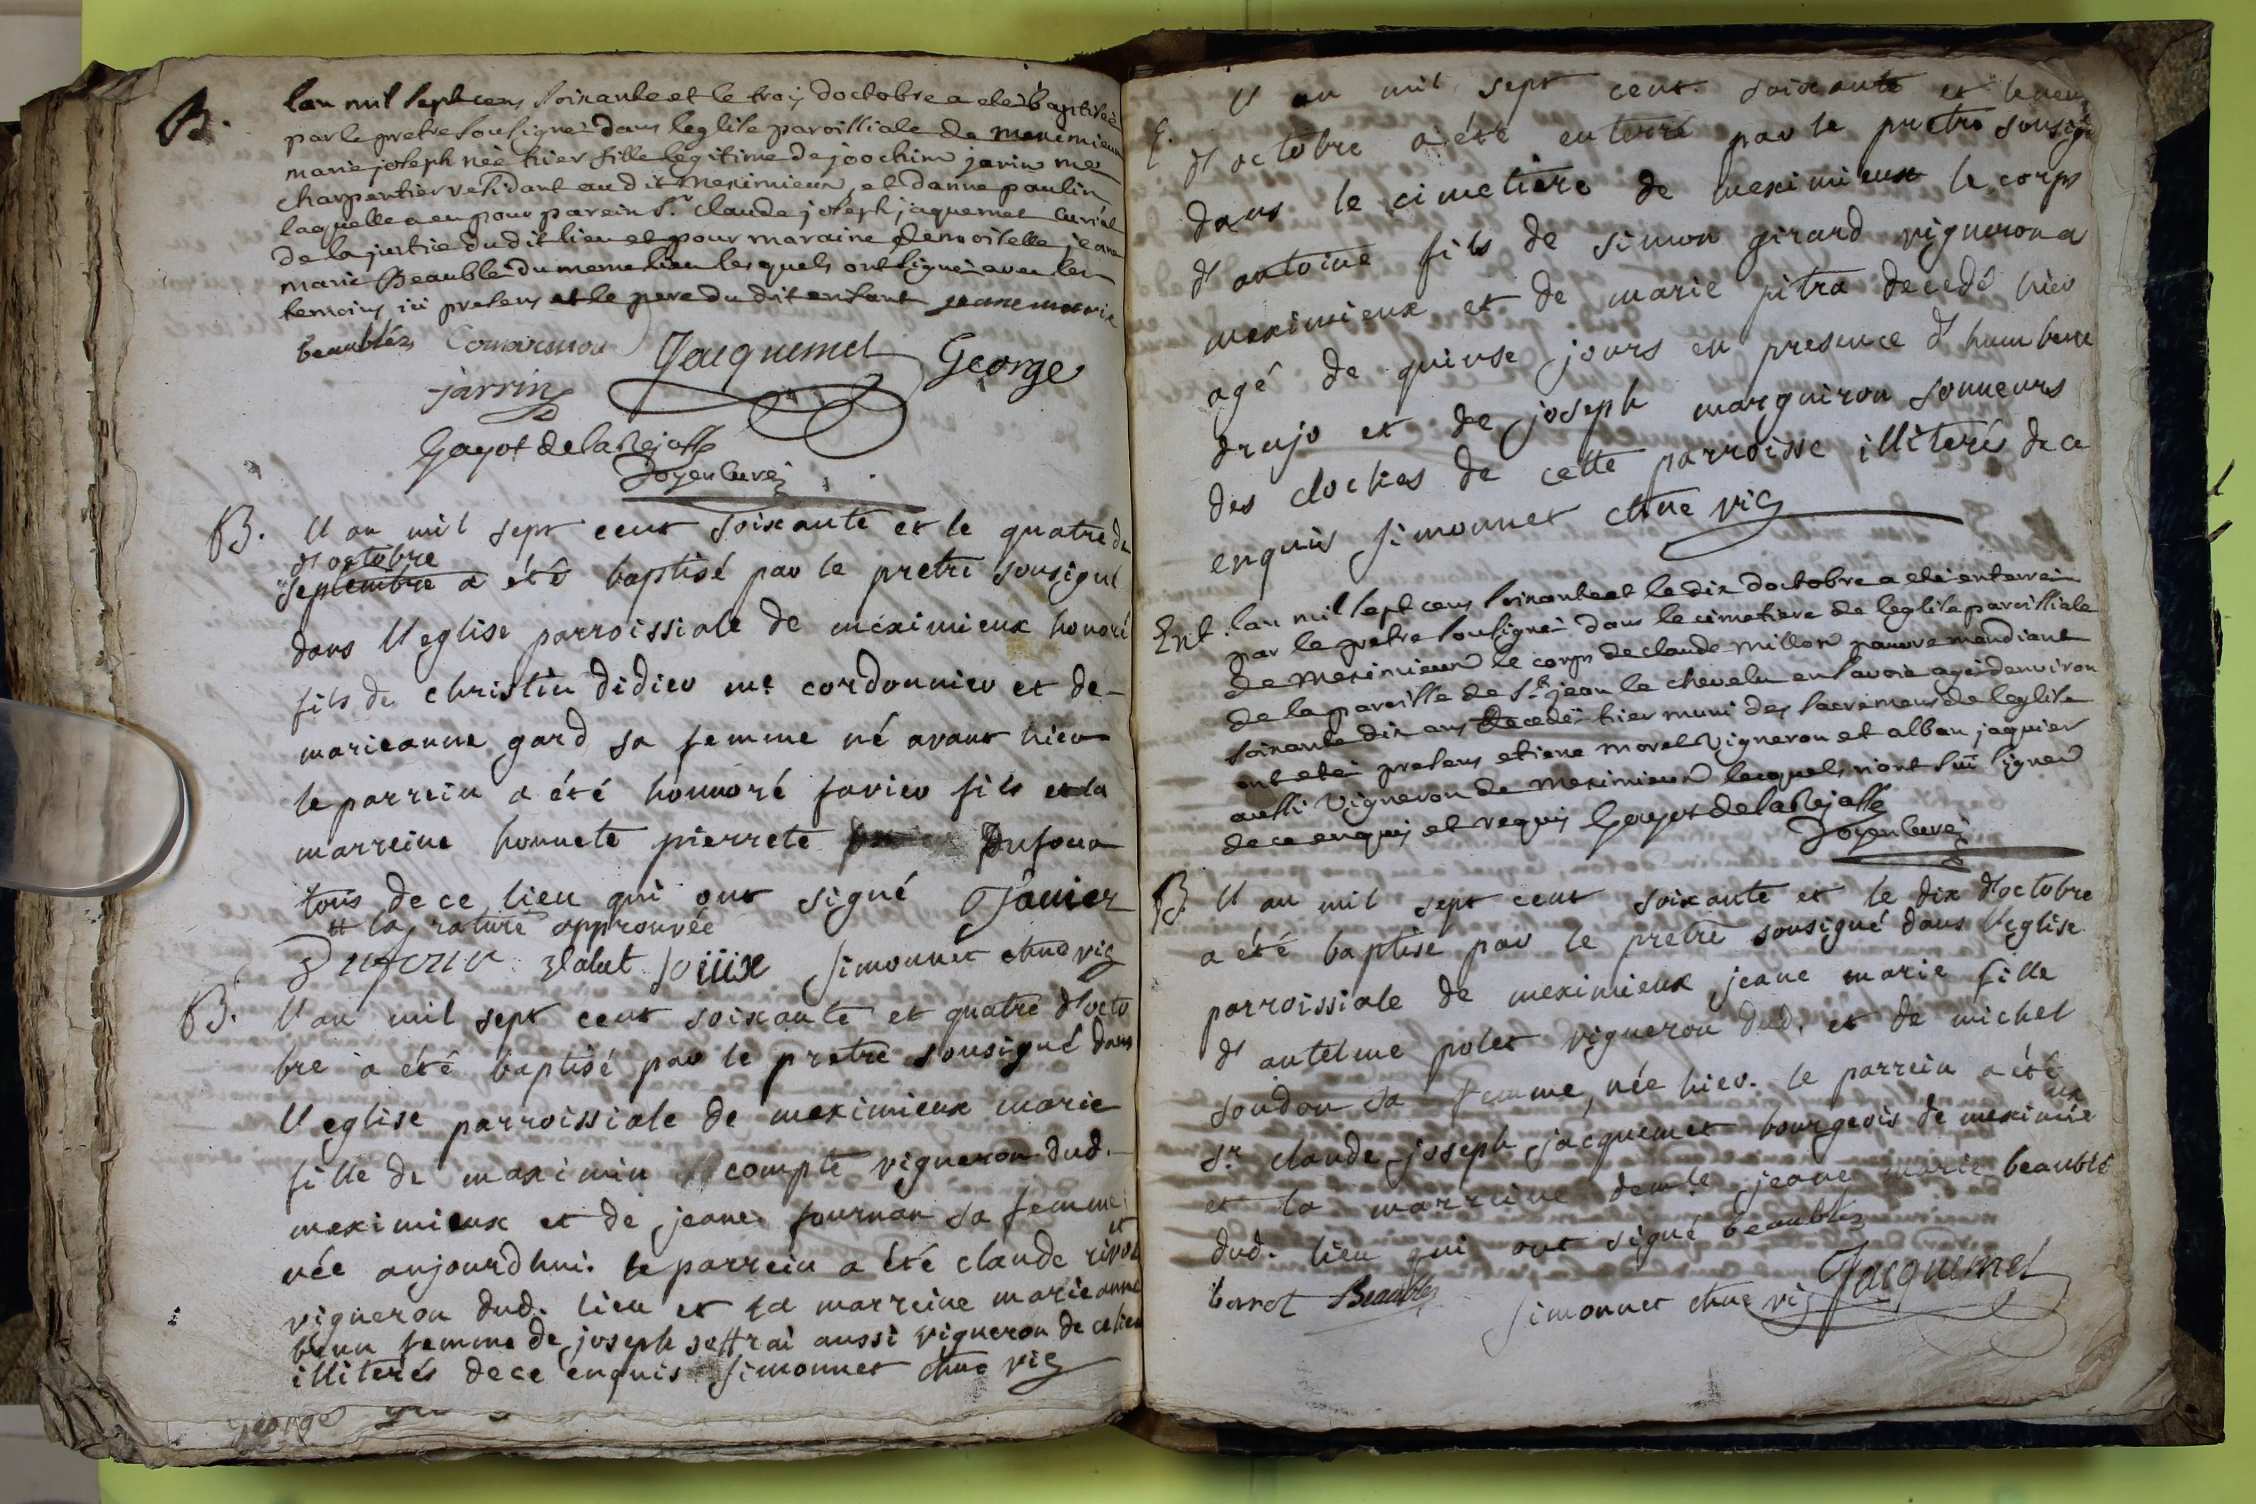 B.
lan mil sept cens soixante et le trois doctobre a eté baptiseé
par le pretre sousigné dans leglise paroissiale de meximieux
marie joseph née hier fille legitime de joochim jarin me
charpentier residant au dit meximieux, et danne paulin
laquelle a eu pour parein sr claude joseph jaquemet curial
de la justice dudit lieu et pour maraine demoiselle jeanne
marie Beaublé du meme lieu lesquels ont signé avec les
temoins ici presens et le pere du dit enfant jeane marie
beaublés Jacquemet George
jarrin
Gayot de la Rejasse
Doyen curé
B. l'an mil sept cent soixante et le quatre de
d'octobre
septembre a été baptisé par le pretre sousigné
dans l'eglise parroissiale de méximieux honoré
fils de christin didier me cordonnier et de
marieanne gard sa femme né avant hier
le parrein a été honnoré favier fils et la
marreine honnete pierrete Dufour
tous de ce lieu qui ont signé favier
# la rature approuvée
Dufour Valat simonnet chne vic
B. l'an mil sept cent soixante et quatre d'octo
bre a été baptisé par le pretre sousigné dans
l'eglise parroissiale de meximieux marie
fille de maximin compte vigneron dud.
meximieux et de jeane fournan sa femme
née aujourdhui. le parrein a été claude
vigneron dud. lieu et la marreine marieanne
femme de joseph seffrai aussi vigneron de ce lieu
illiterés de ce enquis simonnet chne vic
George
E. l'an mil sept cent soixante et le neuf
d'octobre a été enterré par le pretre sousigné
dans le cimetière de meximieux le corps
d'antoine fils de simon girard vigneron a
meximieux et de marie pitra decedé hier
agé de quinse jours en presence d'humbert
drujo et de joseph marguiron sonneurs
des cloches de cette parroisse illiterés de ce
enquis simonnet chne vic
Ent. lan mil sept cens soixante et le dix doctobre a eté enterré
par le pretre sousigné dans le cimetiere de leglise paroissiale
de meximieux le corps de claude millon pauvre mendiant
de la paroisse de st jean le chevelu en savoie agé denviron
soixante dix ans decedé hier muni des sacremens de leglise
ont eté presens etiene morel vigneron et alban jaquier
aussi vigneron de meximieux lesquels n'ont sui signer
de ce enquis et requis Gayot de la Rejasse
Doyen curé
B. l'an mil sept cent soixante et le dix d'octobre
a été baptisé par le pretre sousigné dans l'eglise
parroissiale de meximieux jeane marie fille
d'antelme polet vigneron dud. et de michel
soudon sa femme, née hier. le parrein a été
sr claude joseph jacquemet bourgeois de meximieux
et la marreine demlle jeane marie beaublé
dud. lieu qui ont signé beaublés
Beaublé simonnet chne vic Jacquemet